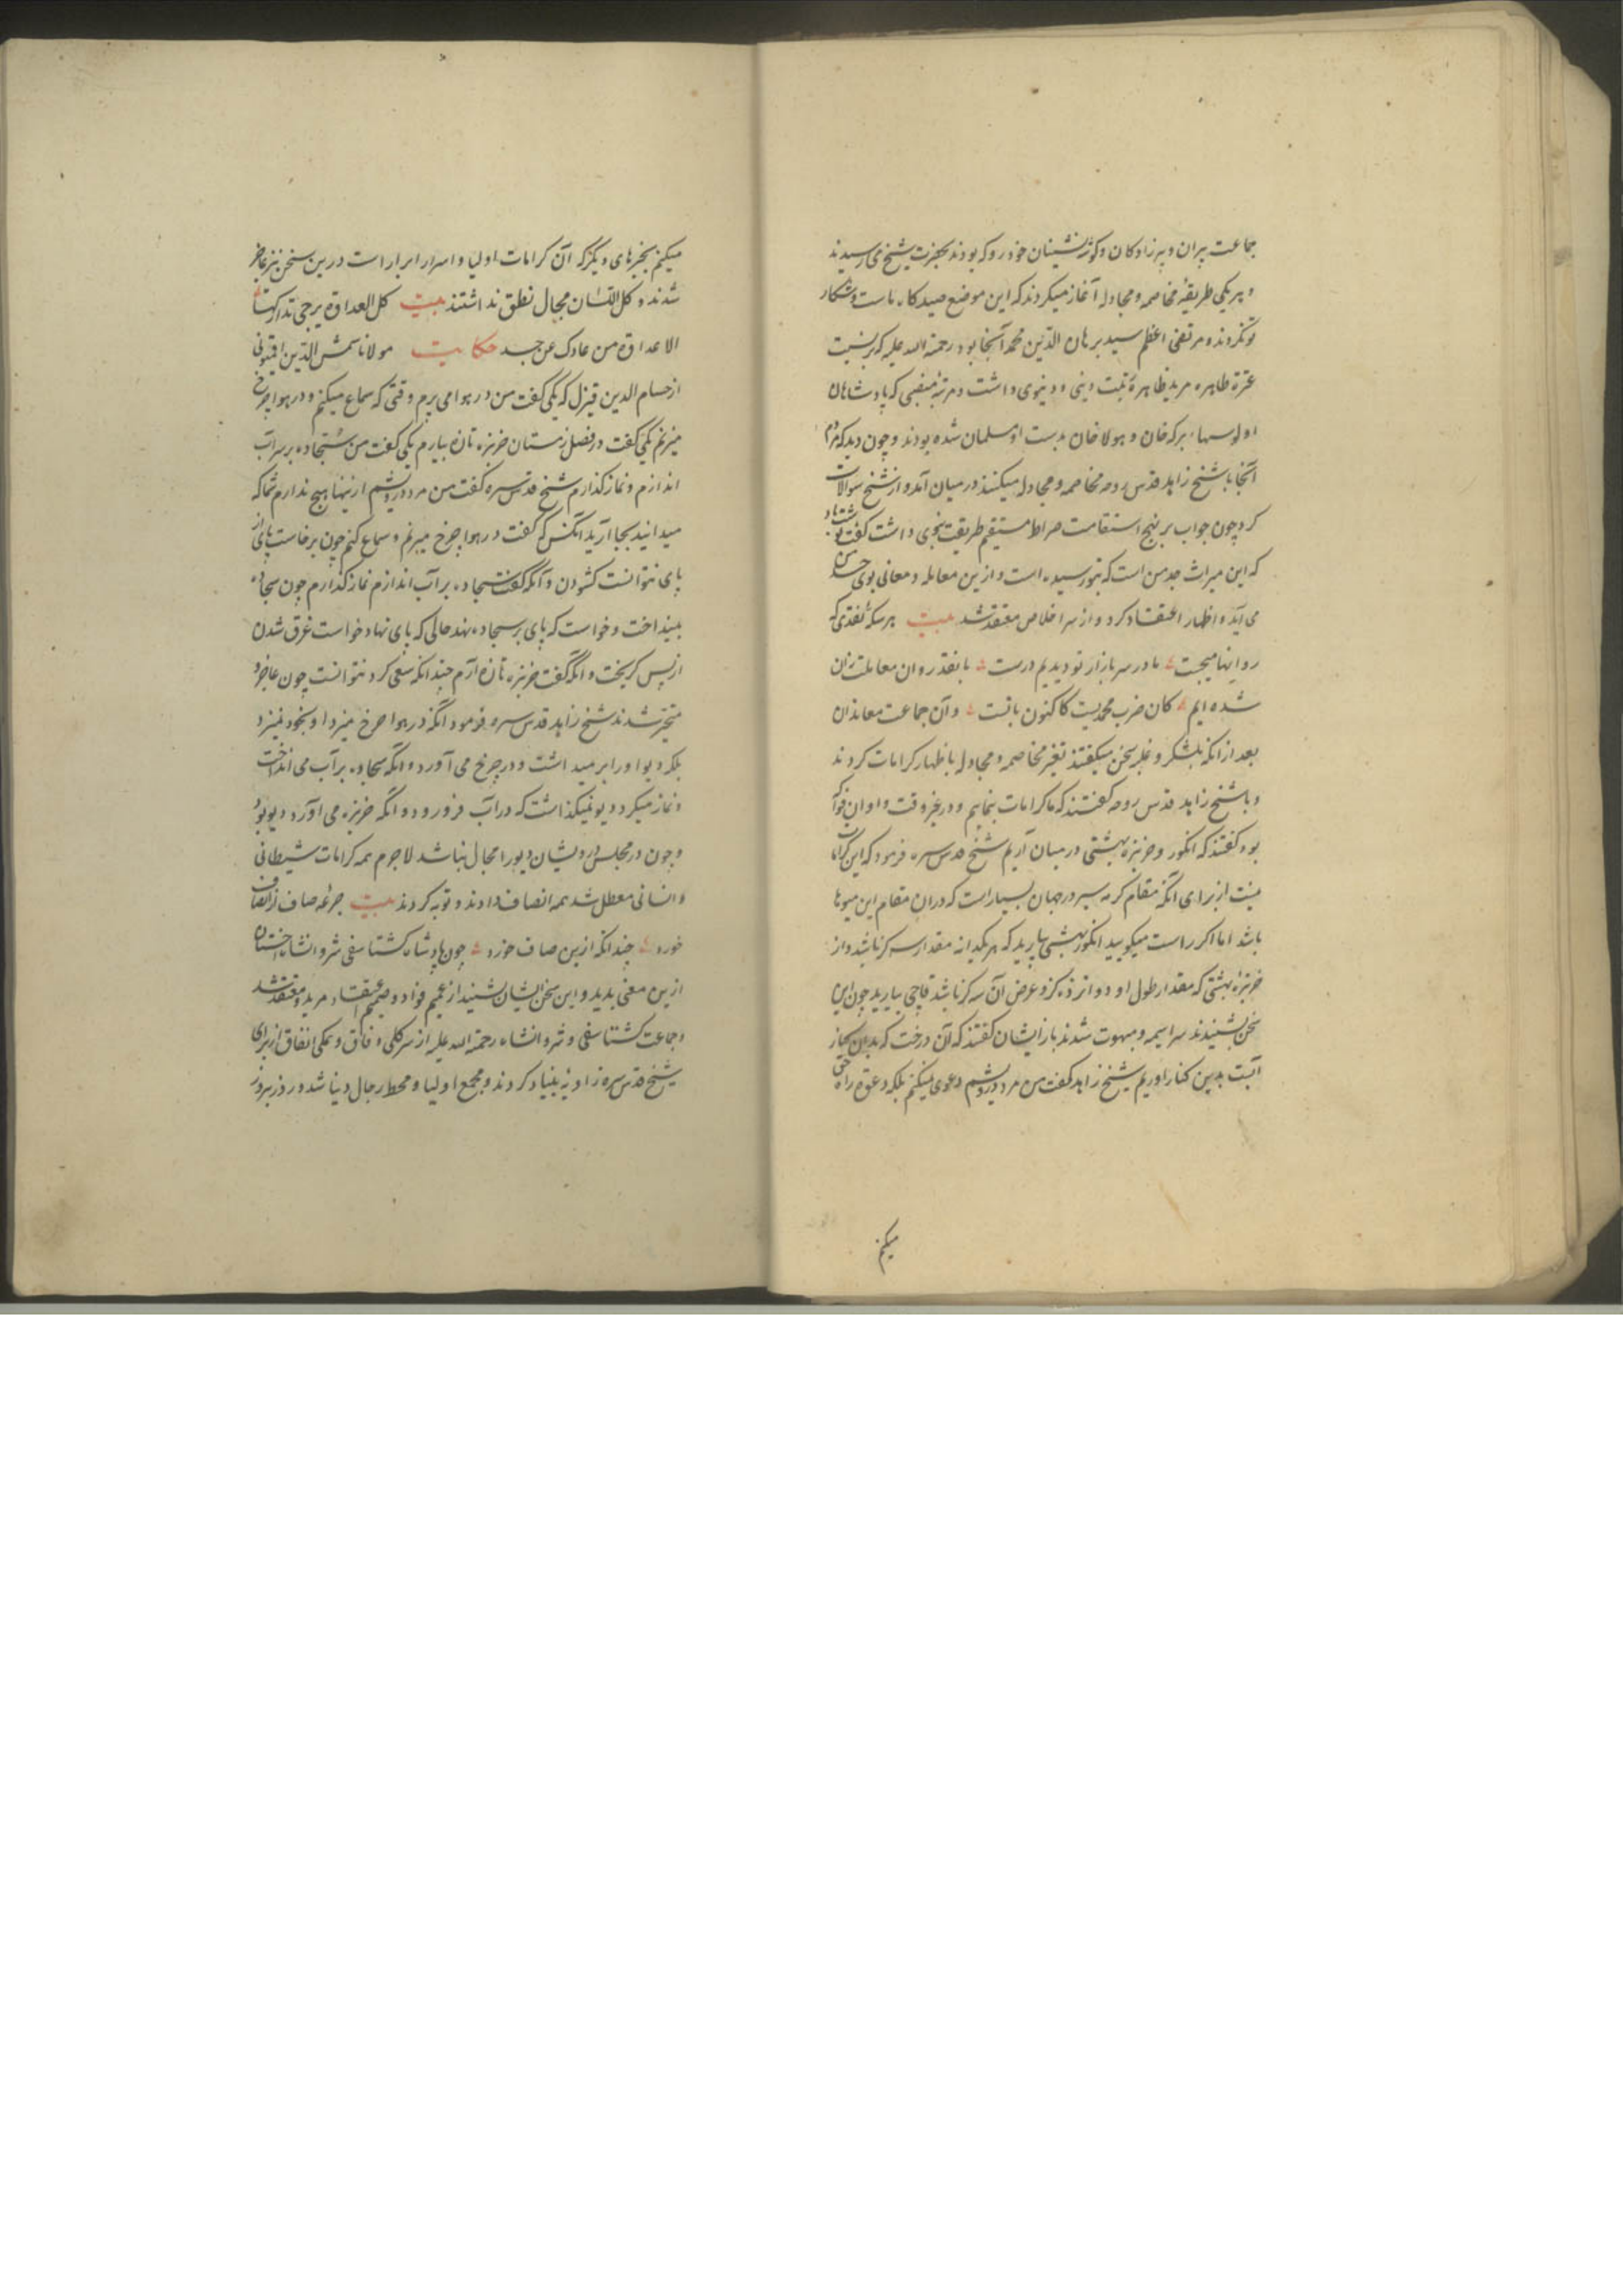 جماعت پیران و پیرزادکان و کوشه نشینان خود رو که بودند بحضرت شیخ می رسیدند
و هر یکی طریقهٔ مخاصمه و مجادله آغاز میکردند که این موضع صیدکاه ماست و شکار
تو نکردند و مرتضی اعظم سید برهان الدین محمد آنجا بود رحمة الله علیه که بر نسبت
عترة طاهره مزید ظاهره دینی و دنیوی داشت و مرتبهٔ منصبی که پادشاهان
برکه خان و هولاخان بدست او مسلمان شده بودند و چون دید که مردم
آنجا با شیخ زاهد قدس روحه مخاصمه و مجادله میکنند در میان آمد و از شیخ سوالات
کرد چون جواب بر نهج استقامت صراط مستقیم طریقت داشت کفت
که این میراث جد من است که بتو رسیده است و از این معامله و معانی بوی
می آید و اظهار اعتقاد کرد و از سر اخلاص معتقد شد بیت هر سکهٔ نقدی که
روانها میجست ما در سر بازار تو دیدیم درست با نقد روان معاملت زان
شده ایم کان ضرب محمدیست کاکنون با تست و آن جماعت معاندان
بعد از آنکه بلشکر و غلبه سخن میکفتند تغیر مخاصمه و مجادله باظهار کرامات کردند
و با شیخ زاهد قدس روحه کفتند که ما کرامات بنماییم و در غیر وقت و اوان
بود کفتند که انکور و خربزهٔ بهشتی در میان آریم شیخ قدس سره فرمود که این کرامات
نیست از برای آنکه مقام کرمسیر در جهان بسیار است که در آن مقام این میوها
باشد اما اکر راست میکویید انکور بهشتی بیارید که هر یکدانه مقدار سه کز باشد و از
خربزه بهشتی که مقدار طول او دوانزده کز و عرض آن سه کز باشد قاچی بیارید چون این
سخن بشنیدند سراسیمه و مبهوت شدند باز ایشان کفتند که آن درخت که بدان کنار
آبست بدین کنار آوریم شیخ زاهد کفت من مرد درویشم دعوی نمیکنم بلکه دعوة راه حق
میکنم
میکنم بخبرهای دیکر که آن کرامات اولیا و اسرار ابرار است درین سخن نیز عاجز
شدند و کل اللسان مجال نطق نداشتند بیت کل العداوة یرجی تدارکها
الا عداوة من عاداک عن حسد حکایت مولانا شمس الدین
از حسام الدین قیزل که یکی کفت من در هوا می پرم وقتی که سماع میکنم و در هوا چرخ
میزنم یکی کفت در فصل زمستان خربزه تازه بیارم یکی کفت من سجاده بر سر آب
اندازم و نماز کذارم شیخ قدس سره کفت من مرد درویشم ازینها هیچ ندارم شما که
میدانید بجا آرید آنکس که کفت در هوا چرخ میزنم و سماع کنم چون برخاست پای از
پای نتوانست کشودن و آنکه کفت سجاده بر آب اندازم نماز کذارم چون سجاده
بینداخت و خواست که پای بر سجاده نهد حالی که پای نهاد خواست غرق شدن
از پس کریخت و آنکه کفت خربزه تازه آرم چندانکه سعی کرد نتوانست چون عاجز و
متحیر شدند شیخ زاهد قدس سره فرمود آنکه در هوا چرخ میزد او بخود نمیزد
بلکه دیو او را بر میداشت و در چرخ می آورد و آنکه سجاده بر آب می انداخت
و نماز میکرد دیو نمیکذاشت که در آب فرو رود و آنکه خربزه می آورد دیو بود
و چون در مجلس درویشان دیو را مجال نباشد لاجرم همه کرامات شیطانی
و انسانی معطل شد همه انصاف دادند و توبه کردند بیت جرعه صاف ز انصاف
خورد چندانکه ازین صاف خورد چون پادشاه کشتاسفی شروانشاه اخستان
ازین معنی بدید و این سخن ایشان شنید از عمیم فؤاد و صمیم اعتقاد مرید و معتقد شد
و جماعت کشتاسفی و شروانشاه رحمة الله علیه از سر کلی وفاق و نمکی اتفاق از برای
شیخ قدس سره زاویهٔ بنیاد کردند و مجمع اولیا و محط رجال دنیا شد و روز بروز